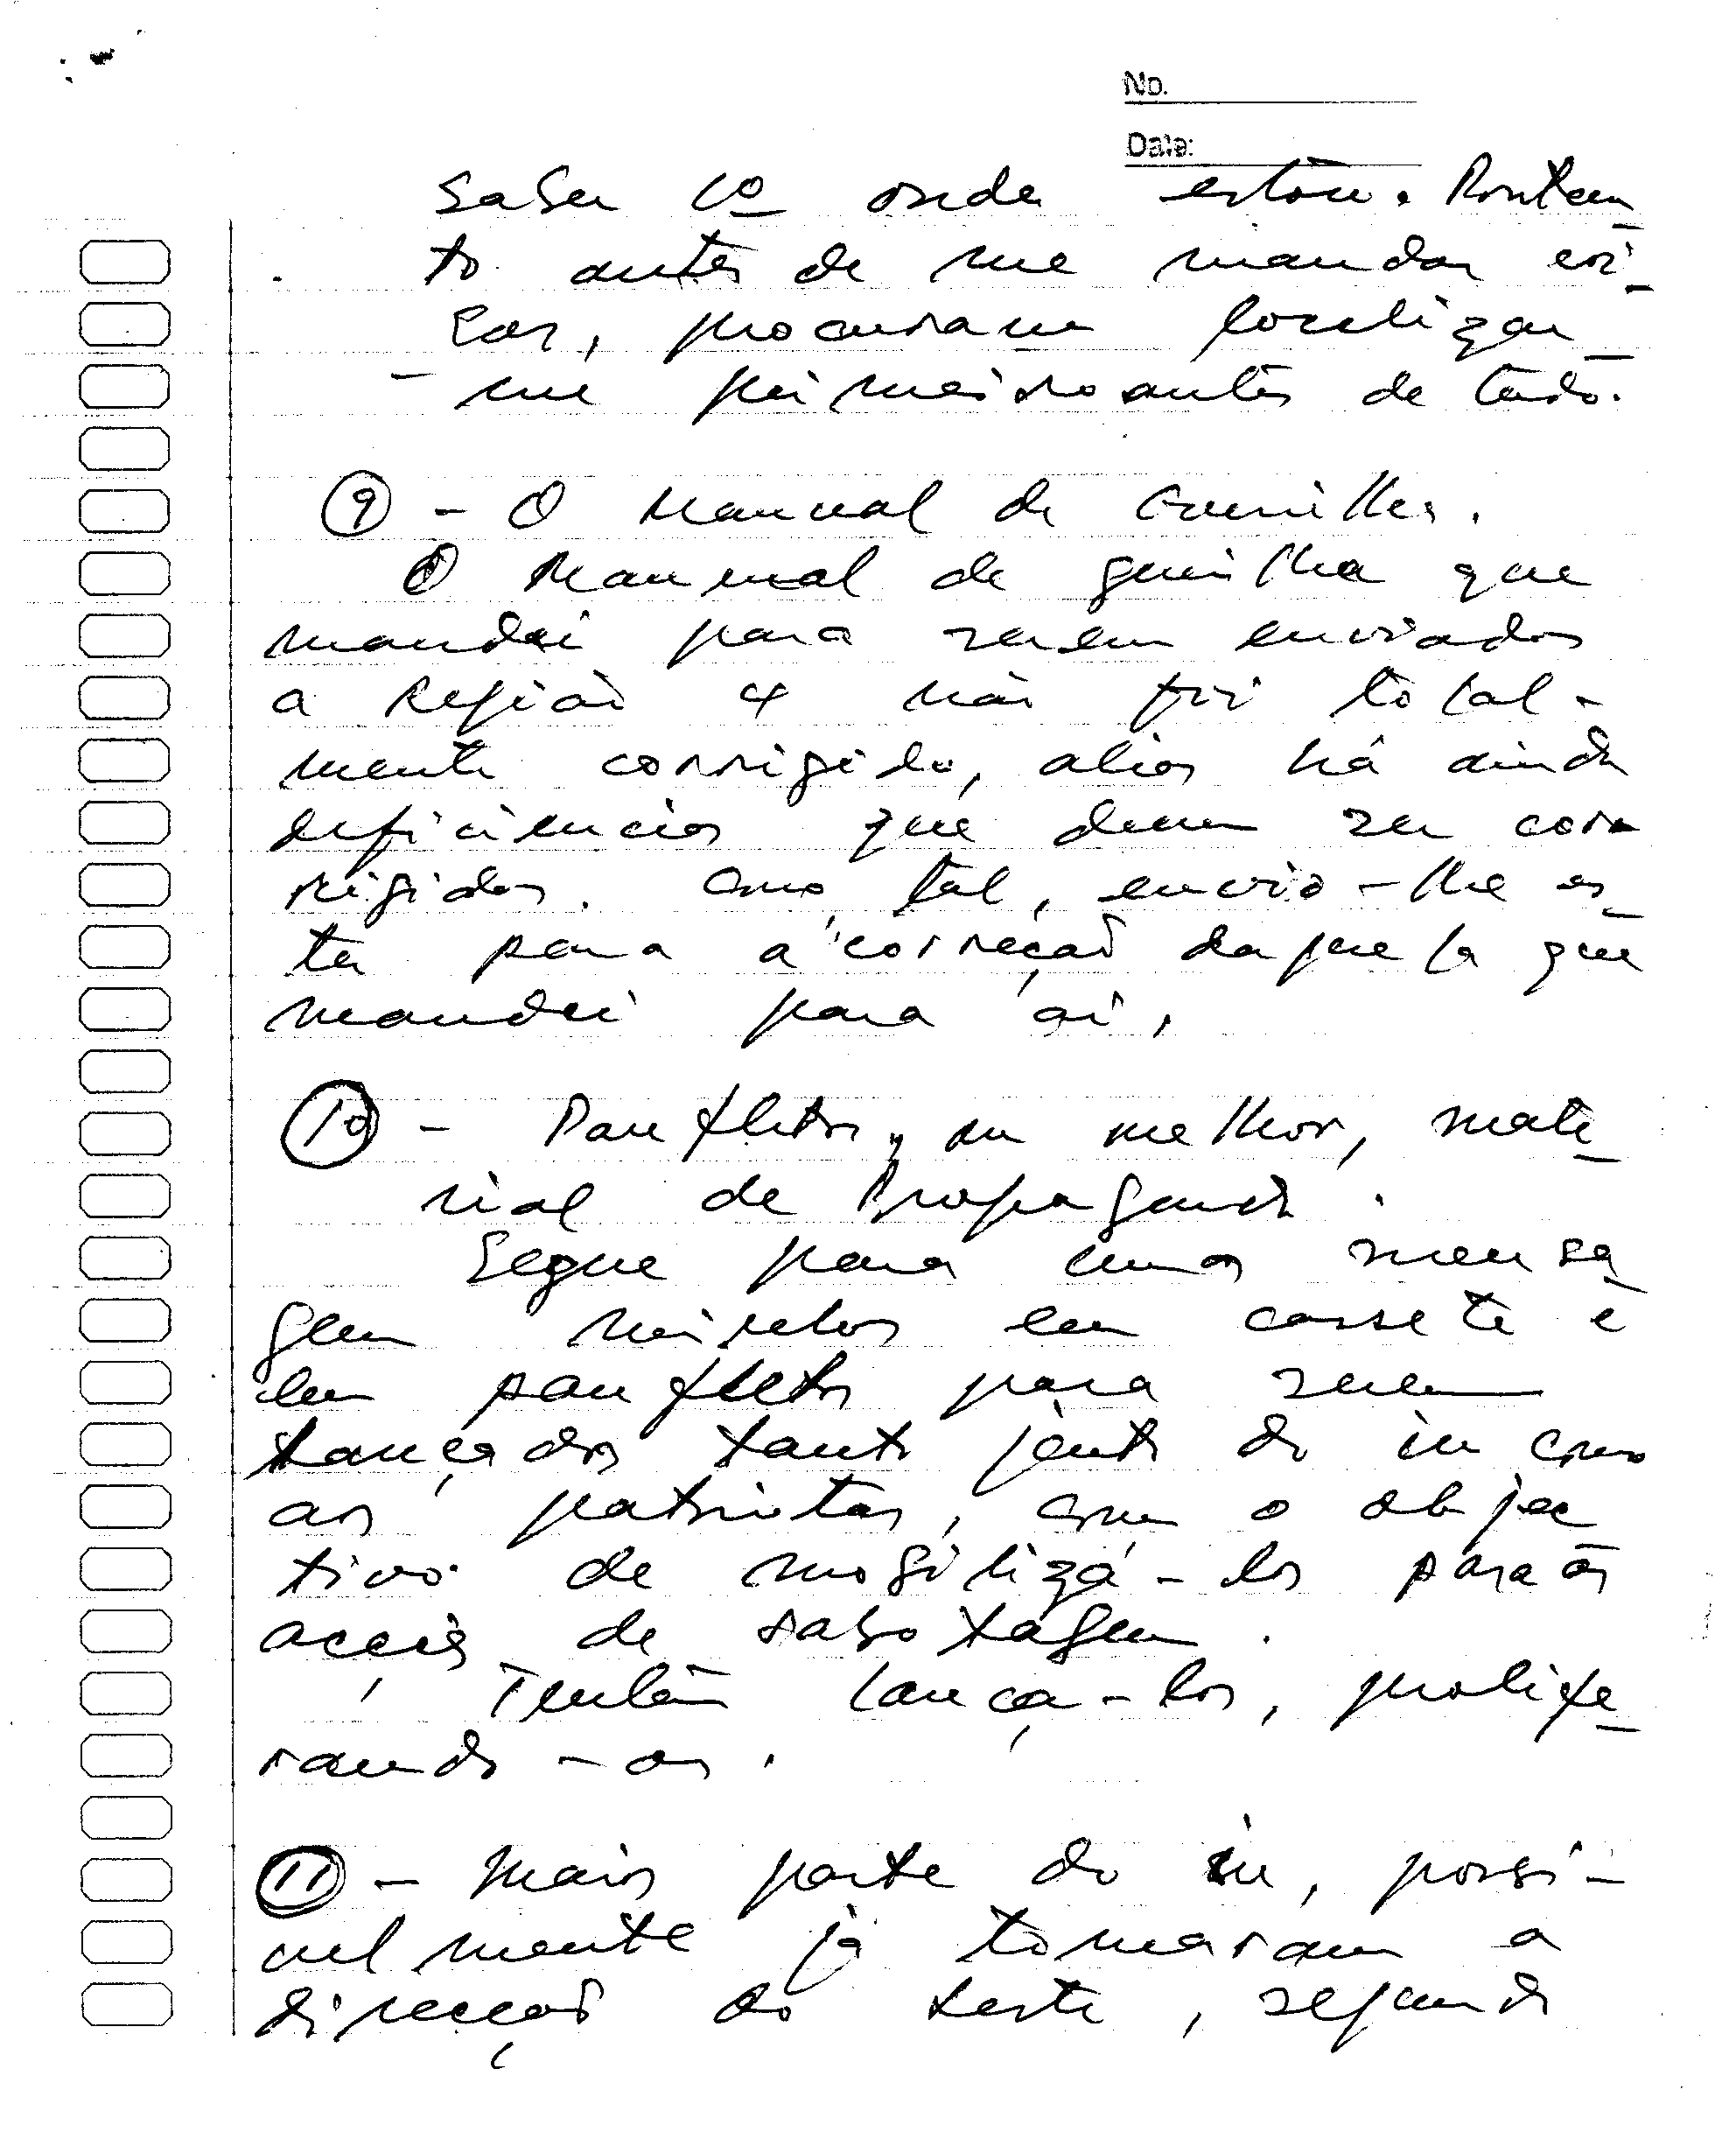 No.
Date:
saber 1º onde estou. Portan
to antes de me mandar
procuram localizar
-me primeiro antes de tudo.
9 - O Manual de Guerrilha.
O Manual de guerrilha que
mandei para serem enviados
a Região 4 não foi total-
mente corrigido, aliás há ainda
deficiências que devem ser cor
rigidas. Como tal, envio-lhe es
ta para a correção daquela que
mandei para aí.
10 - Panfletos, ou melhor, mate
rial de Propaganda.
Segue para mensa
gem em cassete e
em panfletos para serem
lançados tanto junto do in como
aos patriotas, com o objec
tivo de mobilizá-los para as
acções de sabotagem.
Tentem lança-los, prolife
rando-os.
11 - Maior parte do in, possi-
velmente já tomaram a
direcção do leste, segundo